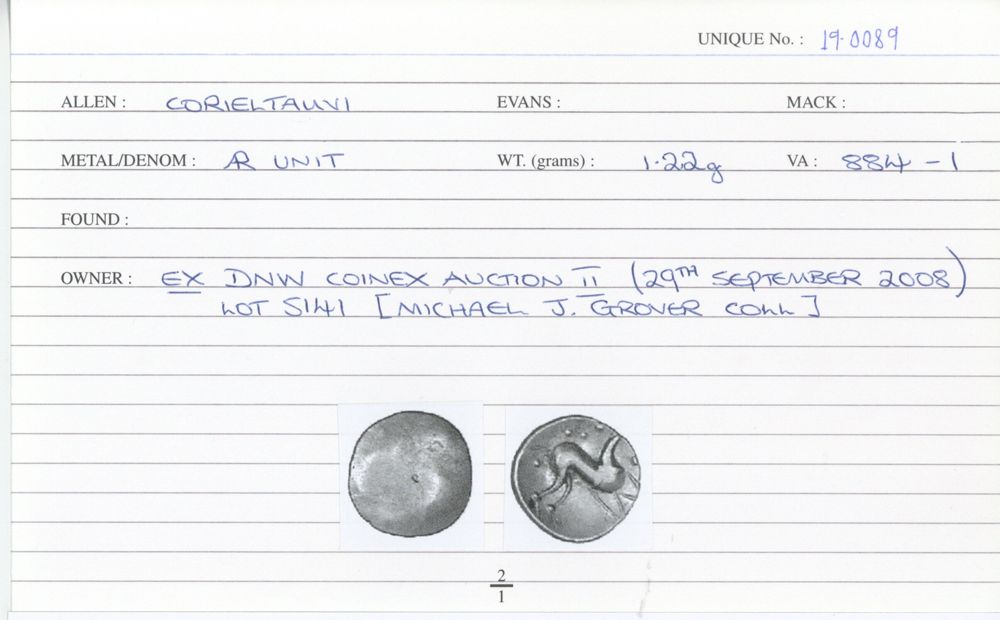 UNIQUE No. : 19.0089
ALLEN : CORIELTAUVI EVANS : MACK :
METAL/DENOM : AR UNIT WT. (grams) : 1.22g VA : 884-1
FOUND :
OWNER : EX DNW COINEX AUCTION II (29TH SEPTEMBER 2008)
LOT 5141 [MICHAEL J. GROVER COLL]
2
1